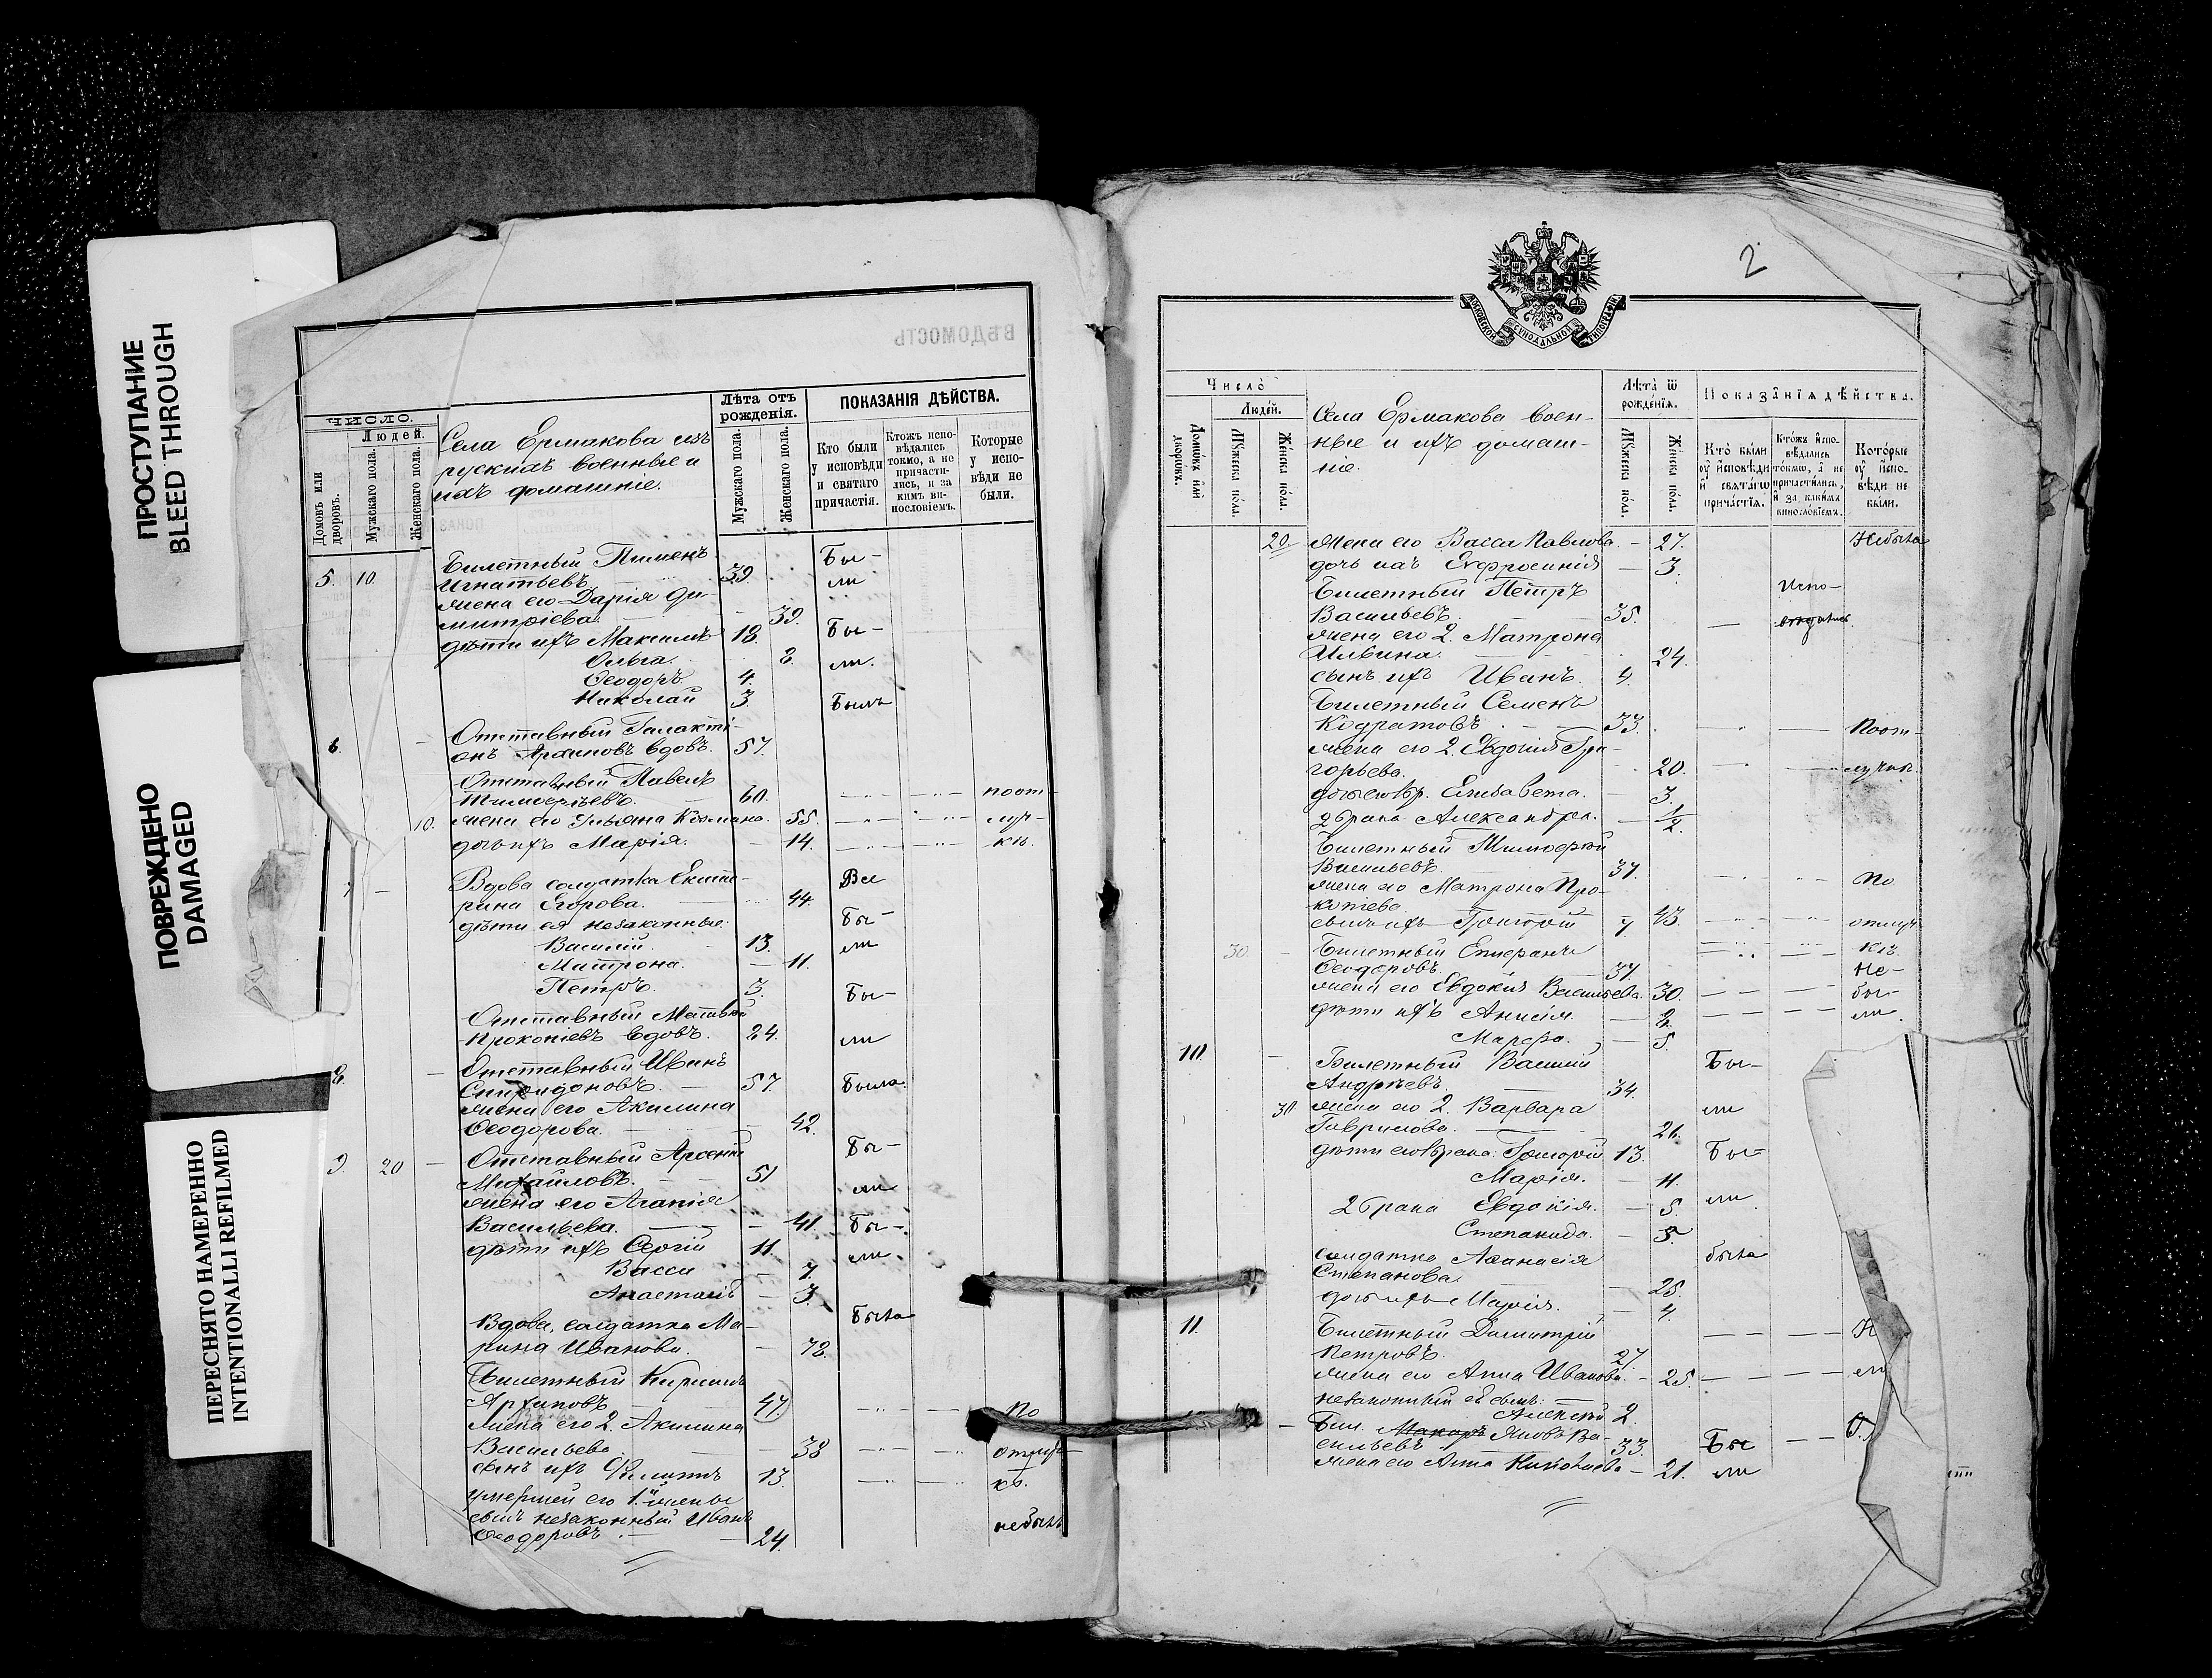 ПРОСТУПАНИЕ
BLEED THROUGH
ПОВРЕЖДЕНО
DAMAGED
ПЕРЕСНЯТО НАМЕРЕННО
INTENTIONALLI REFILMED
ВѢДОМОСТЬ
ЧИСЛО.
Людей.
Домовъ или дворовъ.
Мужскаго пола.
Женскаго пола.
Села Ермакова изъ
военные и
ихъ домашніе.
Лѣта отъ рожденія.
Мужскаго пола.
Женскаго пола.
ПОКАЗАНІЯ ДѢЙСТВА.
Кто были у исповѣди и святаго причастія.
Ктожъ исповѣдались токмо, а не причастились, и за кимъ винословіемъ.
Которые у исповѣди не были.
5. 10. Билетный Пименъ Бы-
Игнатьевъ. 39. ли
жена его Дарія Ди-
митріева. 39.
дѣти ихъ Максимъ 18. Бы-
Ольга. 8. ли.
Ѳеодоръ. 4.
Николай 3. Былъ
6. Отставный Галакті-
онъ Архиповъ вдовъ. 57.
Отставный Павелъ
Тимоѳеевъ. 60. поот-
10. жена его Ульяна Козмина. 55. луч-
дочь ихъ Марія. 14. кѣ.
7 Вдова солдатка Екате- Все
рина Егорова. 44.
дѣти ея незаконные: Бы-
Василій. 13. ли
Матрона. 11.
Петръ. 3. Бы-
Отставный Матвѣй
Прокопіевъ вдовъ. 24. ли
8. Отставный Иванъ
Спиридоновъ. 57. Была.
жена его Акилина
Ѳеодорова. 42.
9 20 Отставный Арсеній Бы-
Михайловъ. 51 ли
жена его Агапія
Васильева. 41. Бы-
дѣти ихъ Сергій 11. ли.
Васса 7.
Анастасія 3.
Вдова, солдатка Ма- Была
рина Иванова. 78.
Билетный Кириллъ
Архиповъ 47. По
жена его 2. Акилина
Васильева. 38 отлуч-
сынъ ихъ Филиппъ 13. кѣ.
умершей его 1й жены
сынъ незаконный Иванъ небылъ
Ѳеодоровъ. 24.
2
МОСКОВСКОЙ СѴНОДАЛЬНОЙ ТИПОГРАФІИ
Число̀
Люде́й.
Домѡ́въ и҆лѝ дворѡ́въ.
Мꙋ́жеска по́ла.
Же́нска по́ла.
Села Ермакова воен-
ные и ихъ домаш-
ніе.
Лѣ̑та ѿ рожде́нїѧ.
Мꙋ́жеска по́ла.
Же́нска по́ла.
Показа̑нїѧ дѣ́йства.
Кто̀ бы́ли оу҆ и҆сповѣ́ди и҆ свѧта́гѡ прича́стїѧ.
Кто́жъ и҆сповѣ́дались то́кмѡ, а҆ не причасти́лись, и҆ за каки́мъ виносло́вїемъ.
Кото́рые оу҆ и҆сповѣ́ди не бы́ли.
20. жена его Васса Павлова. 27. Небыла
дочь ихъ Евфросинія 3.
Билетный Петръ Испо-
Васильевъ. 35.
жена его 2. Матрона
Ильина. 24.
сынъ ихъ Иванъ. 4.
Билетный Семенъ
Кодратовъ. 33. Поот-
жена его 2. Евдокія Гри-
горьева. 20. лучкѣ.
дочь его 1 бр. Елисавета. 3.
2 брака Александра. 1/2.
Билетный Тимоѳей
Васильевъ. 37. По
жена его Матрона Про-
копіева 43.
сынъ ихъ Григорій 7 отлуч
30. Билетный кѣ.
Ѳеодоровъ. 37. Не-
жена его Евдокія Васильева. 30. бы-
дѣти ихъ Анисія. 8. ли
Марѳа. 5.
10. Билетный Василій Бы-
Андреевъ. 34.
30 жена его 2. Варвара ли
Гаврилова. 26.
дѣти 1 брака: Григорій 13. Бы-
Марія. 11.
2 брака Евдокія. 5. ли
Степанида. 3.
солдатка Аѳанасія была
Степанова. 25.
дочь ихъ Марія. 4.
11. Билетный Димитрій Н
Петровъ. 27.
жена его Анна Иванова. 25. ли
незаконный ея сынъ:
Алексѣй 2.
Бил. Макаръ Яковъ Ва-
сильевъ. 33. Бы
жена его Анна 21. ли